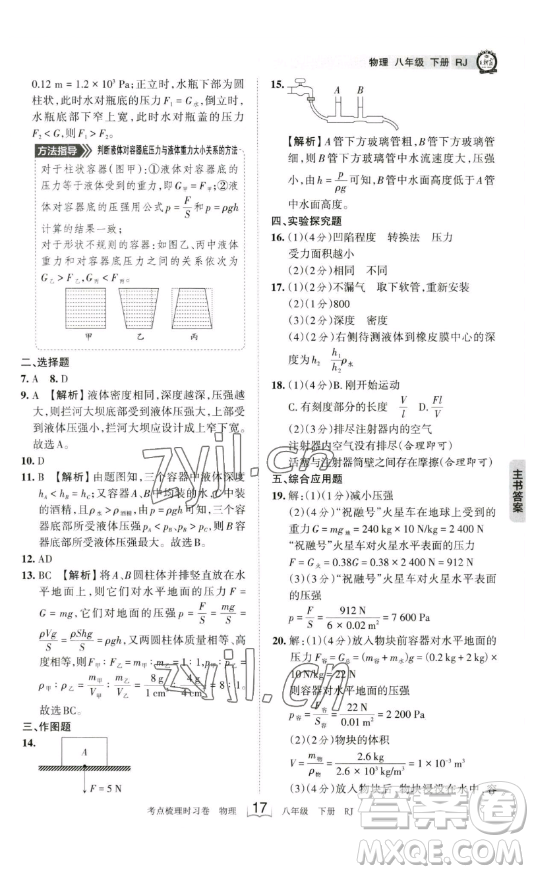 物理 八年级 下册 RJ
0.12 m = 1.2 × 10³ Pa;正立时,水瓶下部为圆
柱状,此时水对瓶底的压力 F₁ = G水,倒立时,
水瓶底部下窄上宽,此时水对瓶盖的压力
F₂ < G水,所以 F₁ > F₂。
方法指导 判断液体对容器底压力与液体重力大小关系的方法
对于柱状容器(图甲):①液体对容器底的
压力等于液体受到的重力,即 G甲 = F甲;②液
体对容器底的压强用公式 p = F/S 和 p = ρgh
计算的结果一致;
对于形状不规则的容器:如图乙、丙,液体
重力和对容器底压力之间的关系依次为
G乙 > F乙,G丙 < F丙。
甲 乙 丙
二、选择题
7. A 8. D
9. A 【解析】液体密度相同,深度越深,压强越
大,则拦河大坝底部受到液体压强大,上部受
到液体压强小,拦河大坝应设计成上窄下宽。
故选 A。
10. D
11. B 【解析】由题图知,三个容器中液体深度
hA < hB = hC;又容器 A、B 中均装的水,C 中装
的酒精,且 ρ水 > ρ酒精,由 p = ρgh 可知,三个容
器底部所受液体压强 pA < pB,pB > pC,则 B 容
器底部所受液体压强最大。故选 B。
12. AD
13. BC 【解析】将 A、B 圆柱体并排竖直放在水
平地面上,则它们对水平地面的压力 F =
G = mg,它们对水平地面的压强 p = F/S = mg/S =
ρVg/S = ρShg/S = ρgh,又两圆柱体压强、高
度相等,则
故选 BC。
三、作图题
14.
A
F = 5 N
15.
A B
【解析】A 管下方玻璃管粗,B 管下方玻璃管
细,所以 B 管下方玻璃管中水流速度大,压强
小,由 h = p/ρg 可知,B 管中水面高度低于 A 管
中水面高度。
四、实验探究题
16. (1)(4 分)凹陷程度 转换法 压力
受力面积越小
(2)(2 分)相同 不同
17. (1)(2 分)不漏气 取下软管,重新安装
(2)(1 分)800
(3)(2 分)深度 密度
(4)(2 分)右侧待测液体到橡皮膜中心的深
度为 h₂ h₁/h₂ ρ水
18. (1)(4 分)B. 刚开始运动
C. 有刻度部分的长度 V/l Fl/V
(2)(3 分)排尽注射器内的空气
注射器内空气没有排尽(合理即可)
活塞与注射器筒壁之间存在摩擦(合理即可)
五、综合应用题
19. 解:(1)(2 分)减小压强
(2)(3 分)“祝融号”火星车在地球上受到的
重力 G = mg = 240 kg × 10 N/kg = 2 400 N
“祝融号”火星车对火星水平表面的压力
F = G火 = 0.38G = 0.38 × 2 400 N = 912 N
(3)(2 分)“祝融号”火星车对火星水平表面
的压强
p = F/S = 912 N/6 × 0.02 m² = 7 600 Pa
20. 解:(1)(2 分)放入物块前容器对水平地面的
压力 F容 = G总 = (m容 + m水)g = (0.2 kg + 2 kg) ×
10 N/kg = 22 N
则容器对水平地面的压强
p容 = F容/S容 = 22 N/0.01 m² = 2 200 Pa
(2)(2 分)物块的体积
V = m物/ρ物 = 2.6 kg/2.6 × 10³ kg/m³ = 1 × 10⁻³ m³
主书答案
考点梳理时习卷 物理 17 八年级 下册 RJ
zyjl.cn
zyjl.cn